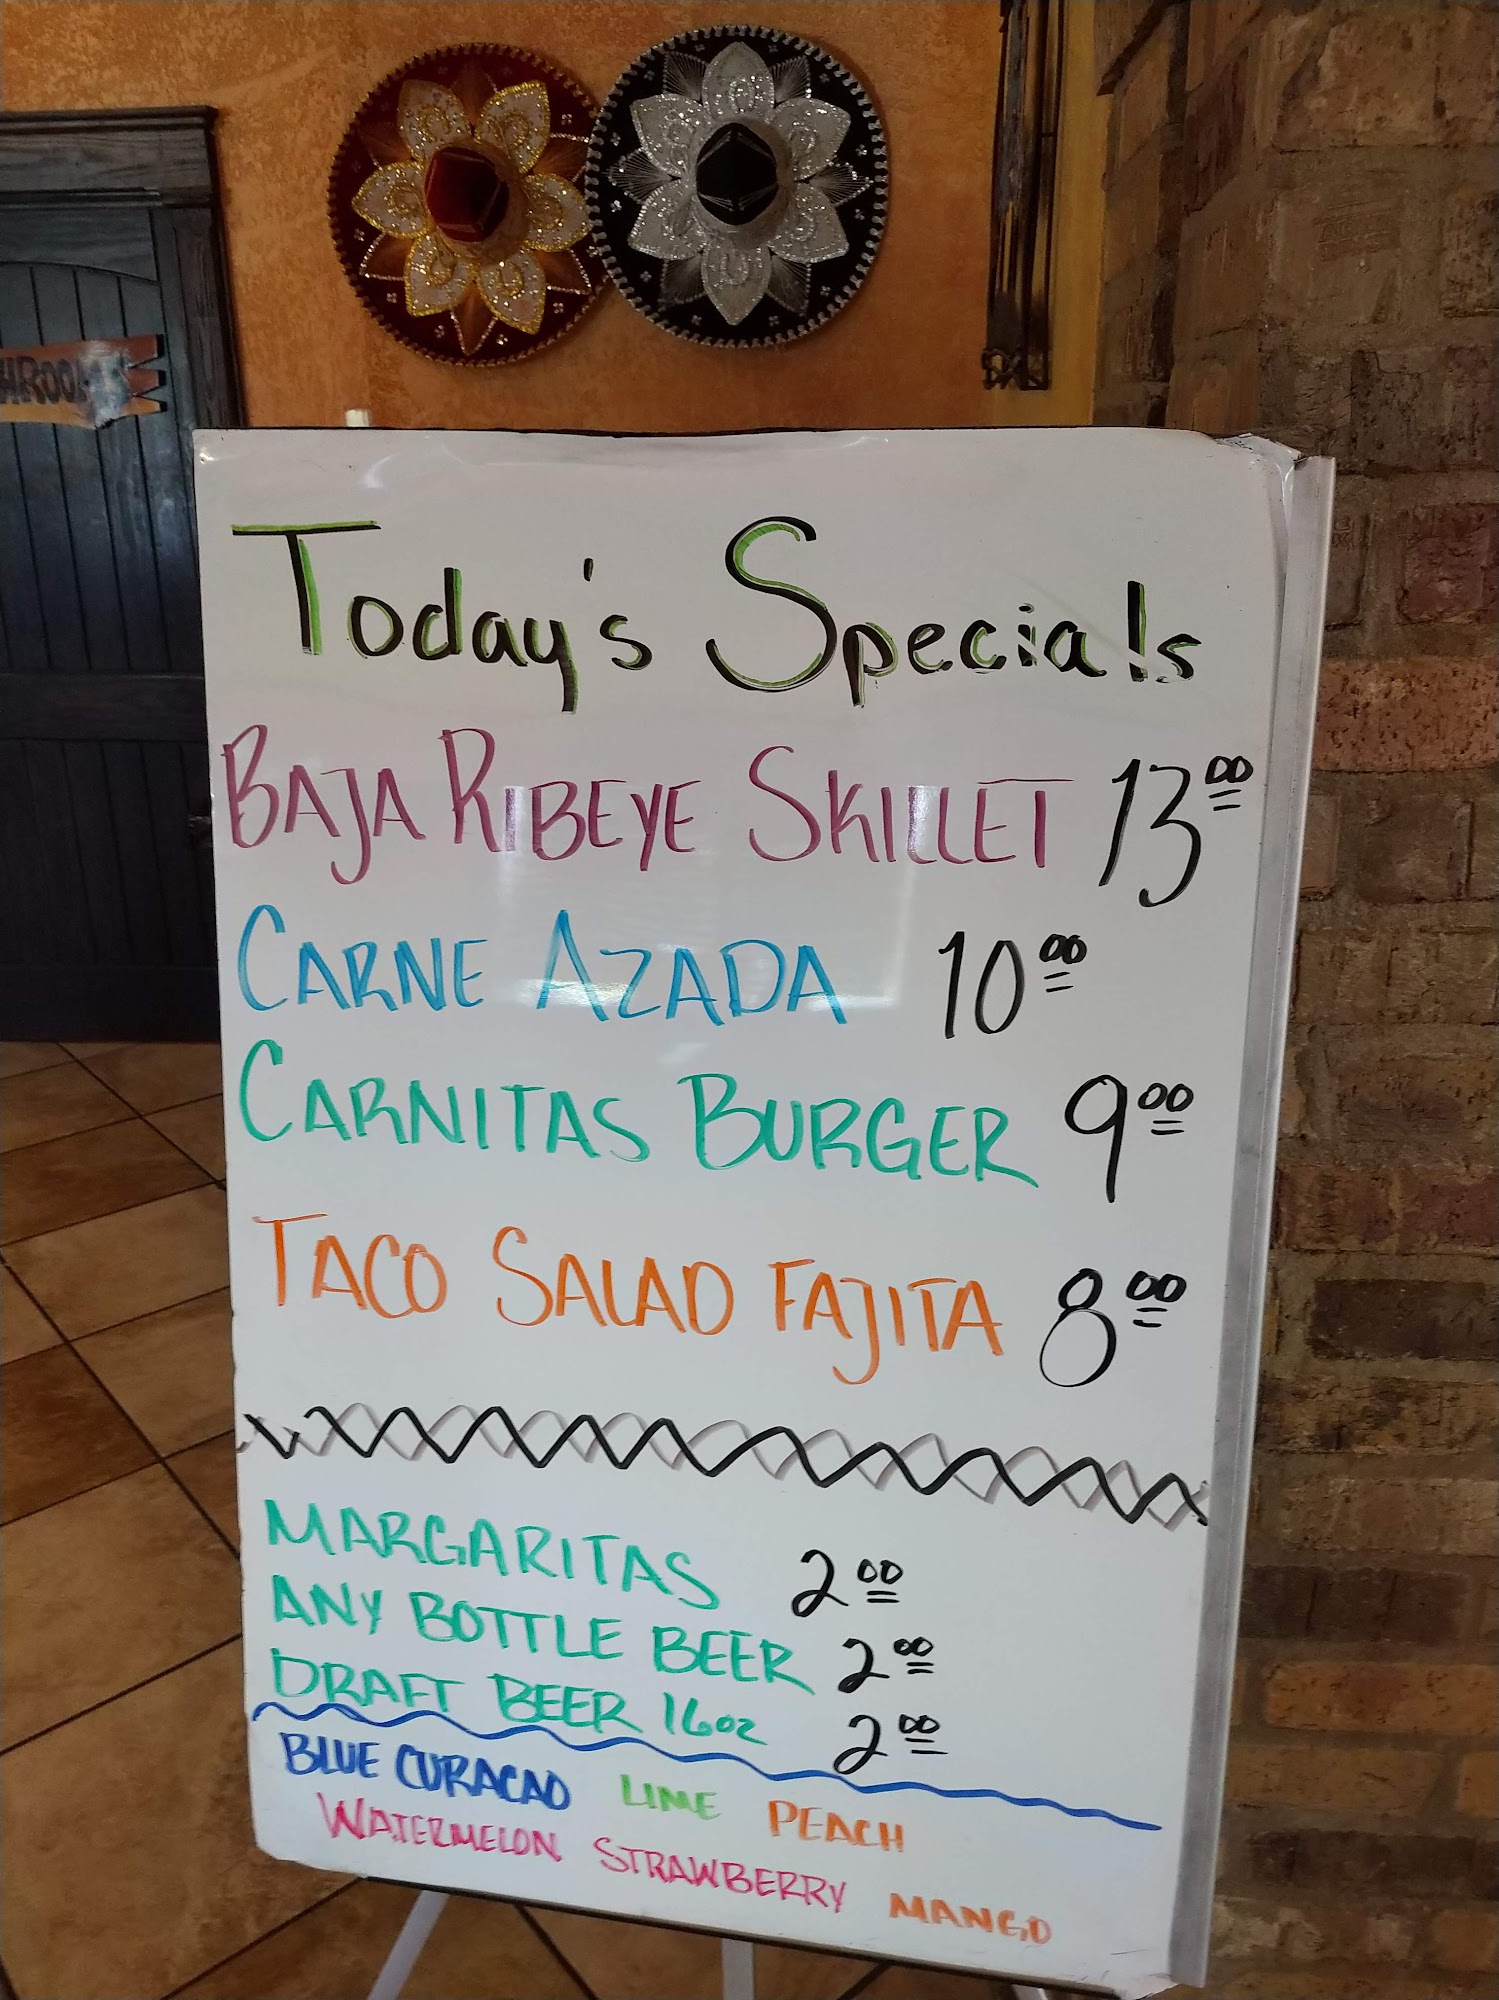 HROOMS
Today's Specials
BAJA RIBEYE SKILLET 13.00
CARNE AZADA 10.00
CARNITAS BURGER 9.00
TACO SALAD FAJITA 8.00
MARGARITAS 2.00
ANY BOTTLE BEER 2.00
DRAFT BEER 16oz 2.00
BLUE CURACAO LIME PEACH
WATERMELON STRAWBERRY MANGO